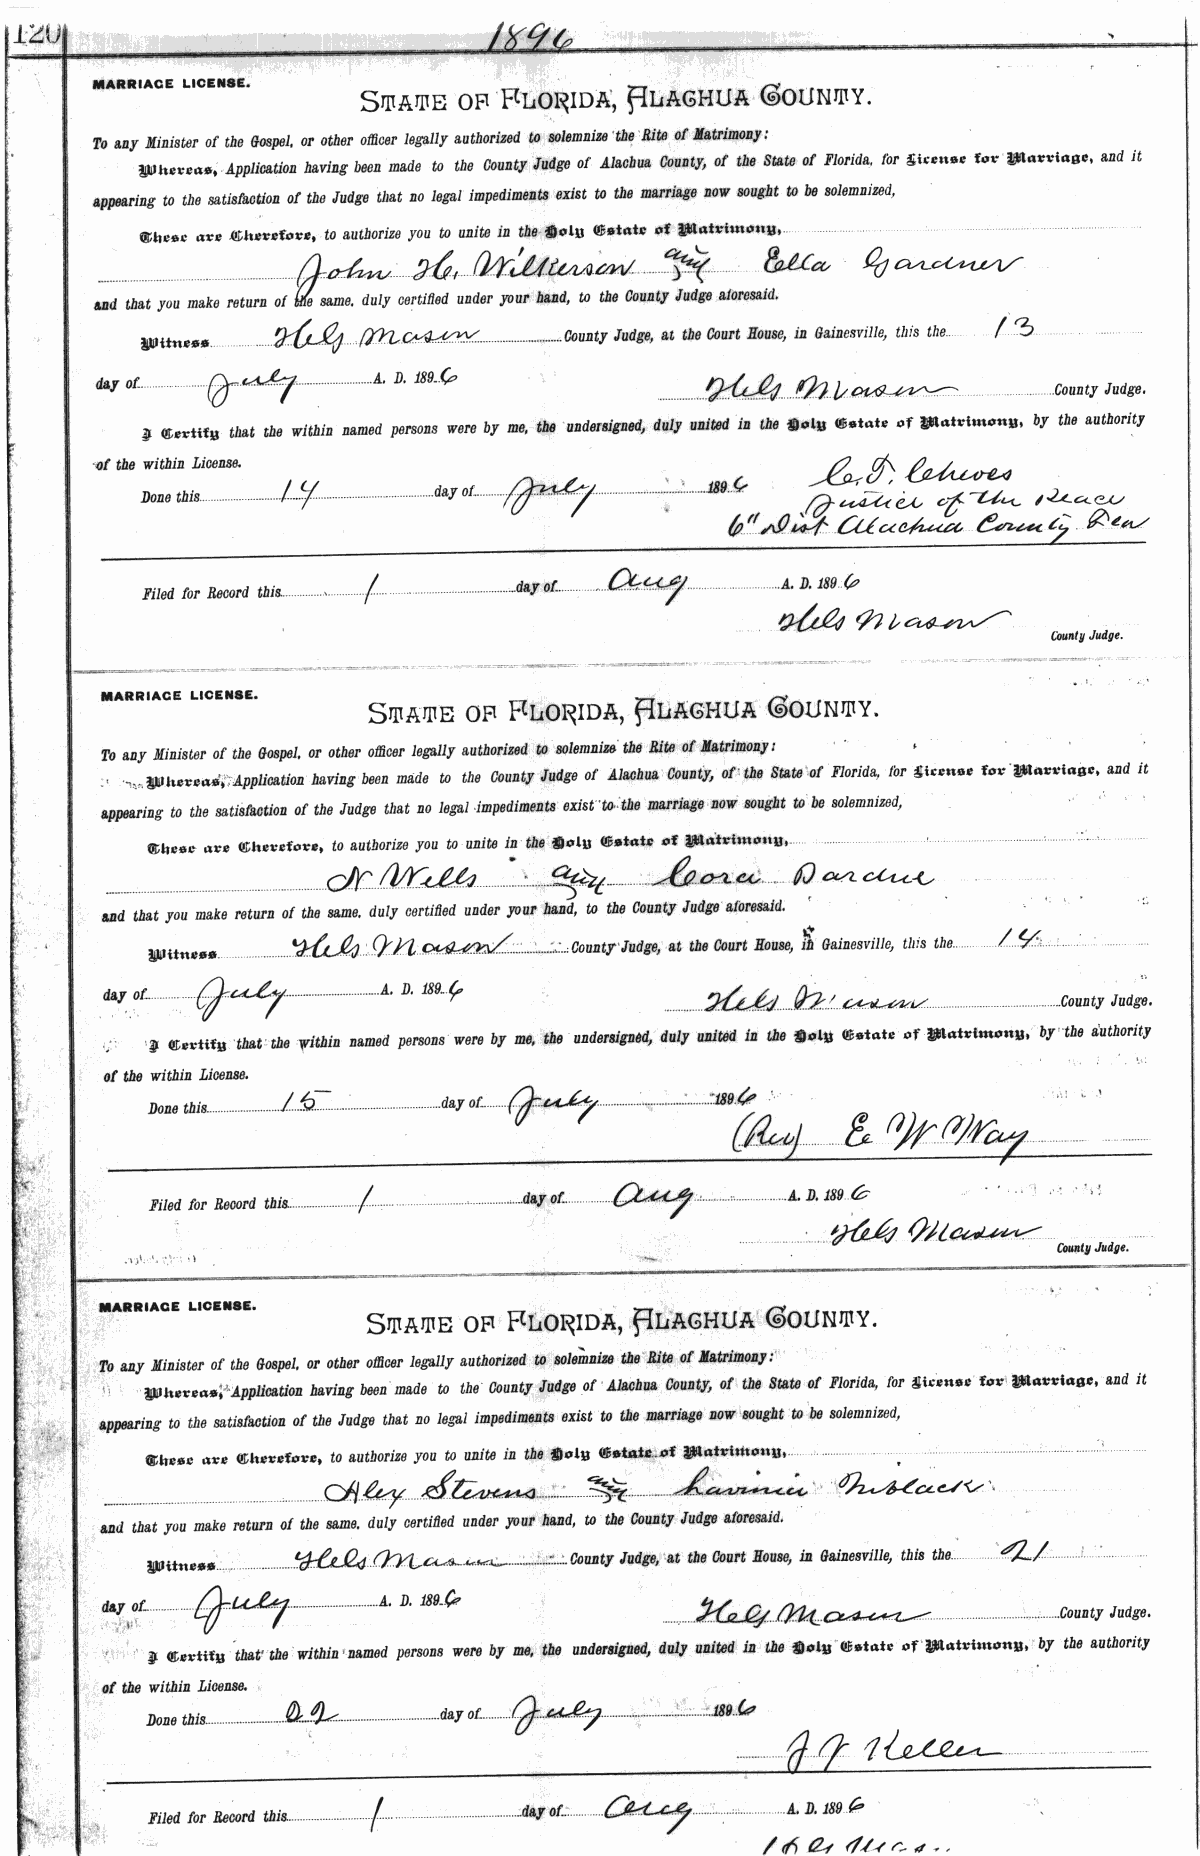 120
1896
MARRIAGE LICENSE.
STATE OF FLORIDA, ALACHUA COUNTY.
To any Minister of the Gospel, or other officer legally authorized to solemnize the Rite of Matrimony:
Whereas, Application having been made to the County Judge of Alachua County, of the State of Florida, for License for Marriage, and it
appearing to the satisfaction of the Judge that no legal impediments exist to the marriage now sought to be solemnized,
These are Therefore, to authorize you to unite in the Holy Estate of Matrimony,
John H. Wilkerson and Ella Gardner
and that you make return of the same, duly certified under your hand, to the County Judge aforesaid.
Witness Mason County Judge, at the Court House, in Gainesville, this the 13
day of July A. D. 1896
Mason County Judge.
I Certify that the within named persons were by me, the undersigned, duly united in the Holy Estate of Matrimony, by the authority
of the within License.
Done this 14 day of July 1896 C. T. Cheves
Justice of the Peace
6" Dist Alachua County Fla
Filed for Record this 1 day of Aug A. D. 1896
Mason
County Judge.
MARRIAGE LICENSE.
STATE OF FLORIDA, ALACHUA COUNTY.
To any Minister of the Gospel, or other officer legally authorized to solemnize the Rite of Matrimony:
Whereas, Application having been made to the County Judge of Alachua County, of the State of Florida, for License for Marriage, and it
appearing to the satisfaction of the Judge that no legal impediments exist to the marriage now sought to be solemnized,
These are Therefore, to authorize you to unite in the Holy Estate of Matrimony,
N Wells and Cora
and that you make return of the same, duly certified under your hand, to the County Judge aforesaid.
Witness Mason County Judge, at the Court House, in Gainesville, this the 14
day of July A. D. 1896
Mason County Judge.
I Certify that the within named persons were by me, the undersigned, duly united in the Holy Estate of Matrimony, by the authority
of the within License.
Done this 15 day of July 1896
(Rev) E W Way
Filed for Record this 1 day of Aug A. D. 1896
Mason
County Judge.
MARRIAGE LICENSE.
STATE OF FLORIDA, ALACHUA COUNTY.
To any Minister of the Gospel, or other officer legally authorized to solemnize the Rite of Matrimony:
Whereas, Application having been made to the County Judge of Alachua County, of the State of Florida, for License for Marriage, and it
appearing to the satisfaction of the Judge that no legal impediments exist to the marriage now sought to be solemnized,
These are Therefore, to authorize you to unite in the Holy Estate of Matrimony,
Alex Stevens and Lavinia Niblack
and that you make return of the same, duly certified under your hand, to the County Judge aforesaid.
Witness Mason County Judge, at the Court House, in Gainesville, this the 21
day of July A. D. 1896
Mason County Judge.
I Certify that the within named persons were by me, the undersigned, duly united in the Holy Estate of Matrimony, by the authority
of the within License.
Done this 22 day of July 1896
Keller
Filed for Record this 1 day of Aug A. D. 1896